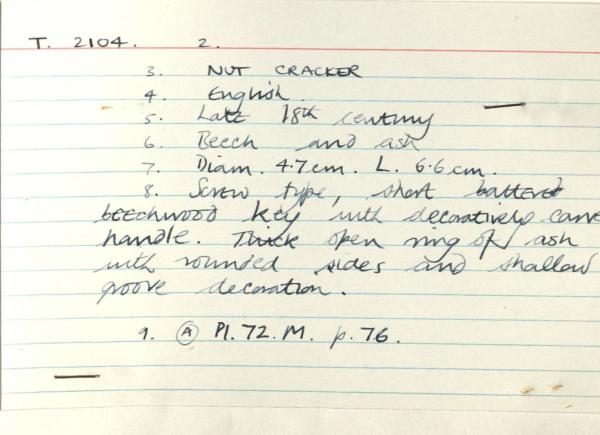 T. 2104. 2.
3. NUT CRACKER
4. English.
5. Late 18th century
6. Beech and ash
7. Diam. 4.7cm. L. 6.6cm.
8. Screw type, short battered
beechwood key with decoratively carve
handle. Thick open ring of ash
with rounded sides and shallow
groove decoration.
9. Ⓐ Pl. 72. M. p. 76.